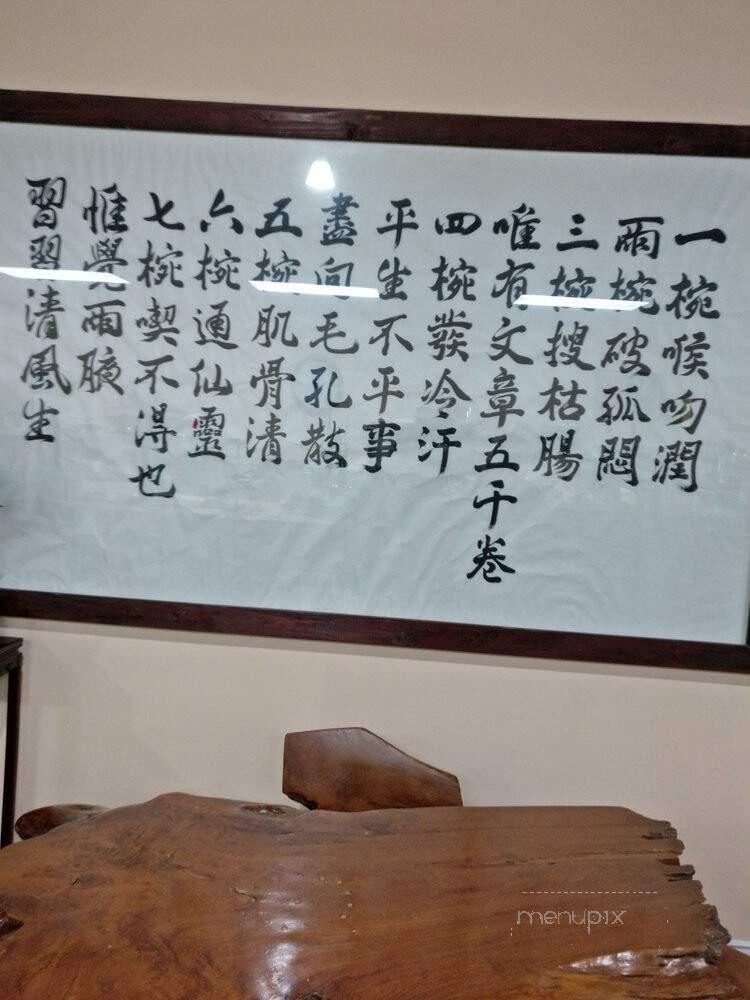 一椀喉吻潤
兩椀破孤悶
三椀搜枯腸
唯有文章五千卷
四椀發冷汗
平生不平事
盡向毛孔散
五椀肌骨清
六椀通仙靈
七椀喫不得也
惟覺兩腋
習習清風生
menupix